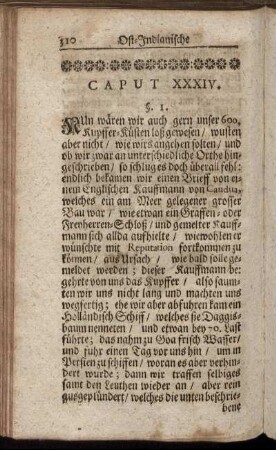 310 Ost-Indianische
CAPUT XXXIV.
§. 1.
NUn wären wir auch gern unser 600.
Kupffer-Kästen loß gewesen / wusten
aber nicht / wie wirs angehen solten / und
ob wir zwar an unterschiedliche Orthe hin-
geschrieben / so schlug es doch überall fehl:
endlich bekamen wir einen Brieff von ei-
nem Englischen Kauffmann von
welches ein am Meer gelegener grosser
Bau war / wie etwan ein Graffen- oder
Freyherren-Schloß / und gemelter Kauff-
mann sich allda auffhielte / woselbsten er
wünschte mit Reputation fortkommen zu
können / aus Ursach / wie bald solle ge-
meldet werden ; dieser Kauffmann be-
gehrte von uns das Kupffer / also säum-
ten wir uns nicht lang und machten uns
wegfertig; ehe wir aber abfuhren kam ein
Holländisch Schiff / welches sie Daggis-
baum nenneten / und etwan bey 70. Last
führte; das nahm zu Goa frisch Wasser /
und fuhr einen Tag vor uns hin / um in
Persien zu schiffen / woran es aber verhin-
dert wurde; dann wir traffen selbiges
samt den Leuthen wieder an / aber rein
ausgeplündert / welches die unten beschrie-
bene